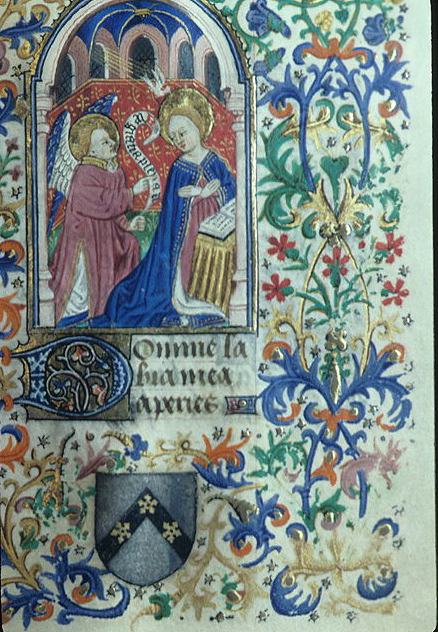 Domine la
bia mea
aperies